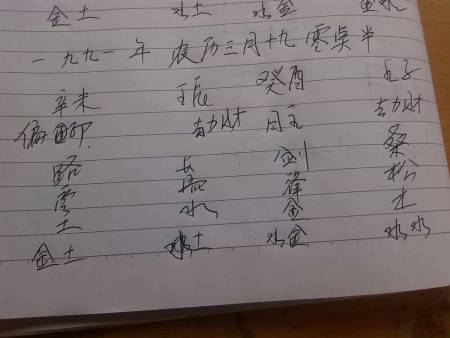 金土 水土 水金
一九九一年 农历三月十九 零点半
辛未 壬辰 癸酉 壬子
偏印 劫财 日主 劫财
路 长 剑 桑
旁 流 锋 松
土 水 金 木
金土 水土 水金 水水